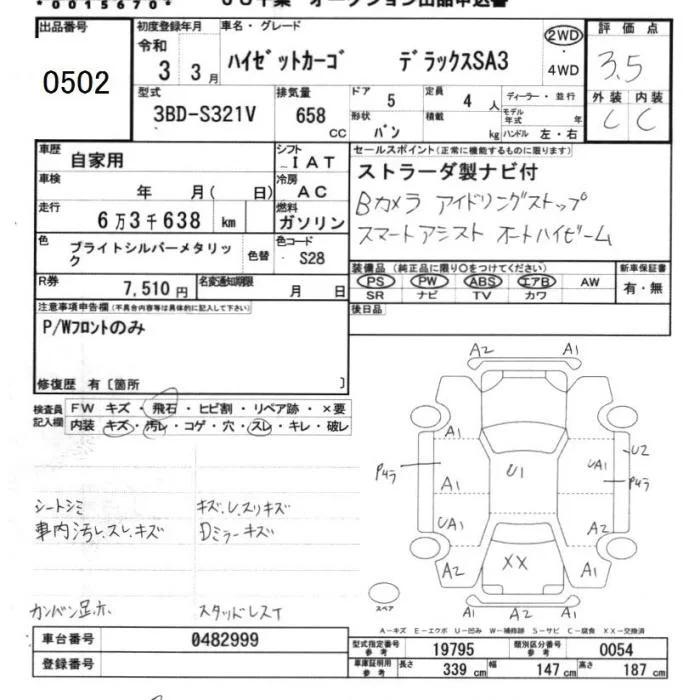 *0015670*
ＪＵ千葉 オークション出品申込書
出品番号 0502
初度登録年月 令和 3 3月
車名・グレード ハイゼットカーゴ デラックスSA3
2WD・4WD
評価点 3.5
外装 C 内装 C
型式 3BD-S321V
排気量 658 CC
ドア 5 定員 4 人
形状 バン 積載 kg
ディーラー・並行
モデル年式 年
ハンドル 左・右
車歴 自家用
シフト IAT
車検 年 月( 日)
冷房 AC
走行 6万3千638 km
燃料 ガソリン
色 ブライトシルバーメタリック 色替
色コード S28
R券 7,510円
名変通知期限 月 日
セールスポイント(正常に機能するものに限ります)
ストラーダ製ナビ付
Bカメラ アイドリングストップ
スマートアシスト オートハイビーム
装備品(純正品に限り○をつけてください)
PS PW ABS エアB AW
SR ナビ TV カワ
新車保証書 有・無
後日品
注意事項申告欄(不具合内容等は具体的に記入して下さい)
P/Wフロントのみ
修復歴 有〔箇所 〕
検査員記入欄
FW キズ・飛石・ヒビ割・リペア跡・×要
内装 キズ・汚レ・コゲ・穴・スレ・キレ・破レ
シートシミ
車内汚レ、スレ、キズ
キズ、レ、スリキズ
Dミラーキズ
カンバン足赤
スタッドレスT
A2 A1
A1
U2
P4ラ A1 U1 UA1 P4ラ
UA1 A2
A2 XX A1
A1 A2 A1
スペア
A−キズ E−エクボ U−凹み W−補修跡 S−サビ C−腐食 XX−交換済
車台番号 0482999
登録番号
型式指定番号参考 19795 類別区分番号参考 0054
車庫証明用参考 長さ 339 cm 幅 147 cm 高さ 187 cm